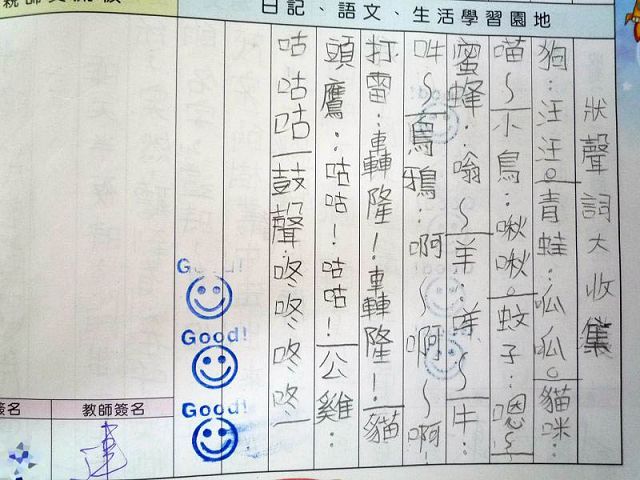 日記、語文、生活學習園地
狀聲詞大收集
狗:汪汪。青蛙:呱呱。貓咪:
喵~小鳥:啾啾。蚊子:嗯~
蜜蜂:嗡~羊:咩~牛:
吽~烏鴉:啊~啊~啊~
打雷:轟隆!轟隆!貓
頭鷹:咕咕!咕咕!公雞:
咕咕咕鼓聲:咚咚咚咚
Good!
Good!
Good!
教師簽名
簽名